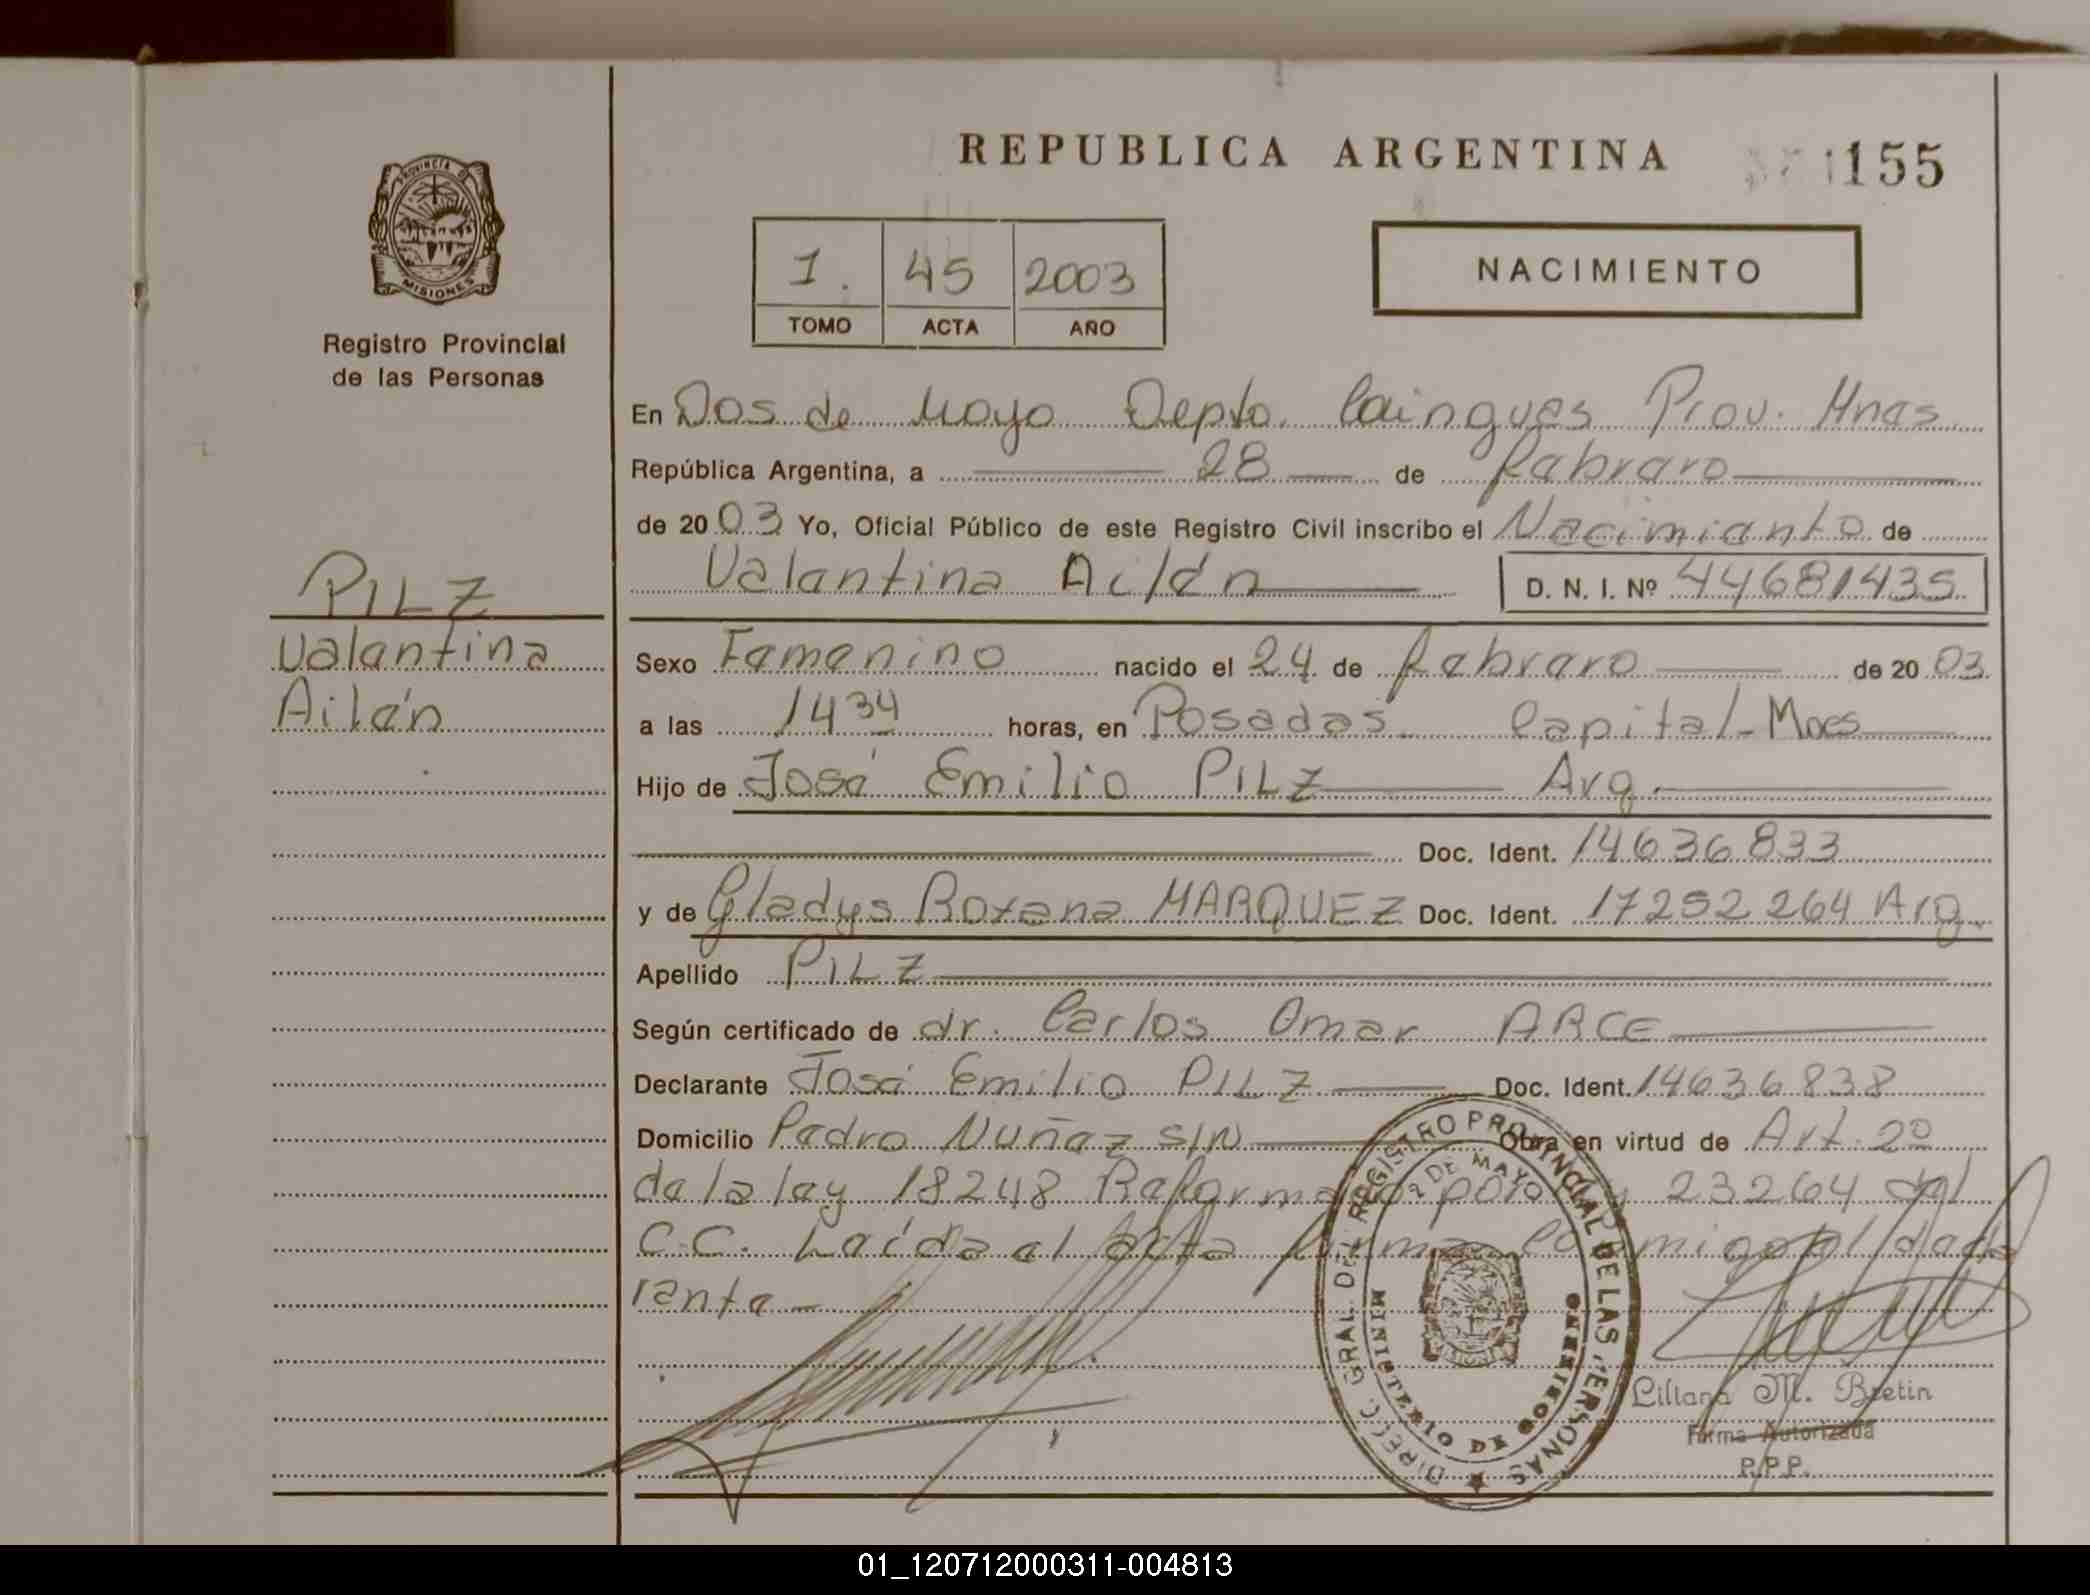 REPUBLICA ARGENTINA 155
PROVINCIA DE
MISIONES
Registro Provincial
de las Personas
1. 45 2003
TOMO ACTA AÑO
NACIMIENTO
En Dos de Mayo Depto. Cainguas Prov. Mnes
República Argentina, a 28 de febrero
de 20 03 Yo, Oficial Público de este Registro Civil inscribo el Nacimiento de
Valentina Ailén D. N. I. Nº 44681435
PILZ
Valentina
Ailén
Sexo Femenino nacido el 24 de febrero de 20 03
a las 14 34 horas, en Posadas Capital - Mnes
Hijo de José Emilio PILZ Arg.
Doc. Ident. 14636833
y de Gladys Roxana MARQUEZ Doc. Ident. 17252264 Arg.
Apellido PILZ
Según certificado de dr. Carlos Omar ARCE
Declarante José Emilio PILZ Doc. Ident. 14636838
Domicilio Pedro Nuñez S/N Obra en virtud de Art. 2º
de la ley 18248 Reformado por 23264 del
C.C. Leída el acta firma conmigo el decla
rante
DIRECC. GRAL. DEL REGISTRO PROVINCIAL DE LAS PERSONAS
2 DE MAYO
MINISTERIO DE GOBIERNO
Liliana M. Bretin
Firma Autorizada
P.P.P.
01_120712000311-004813